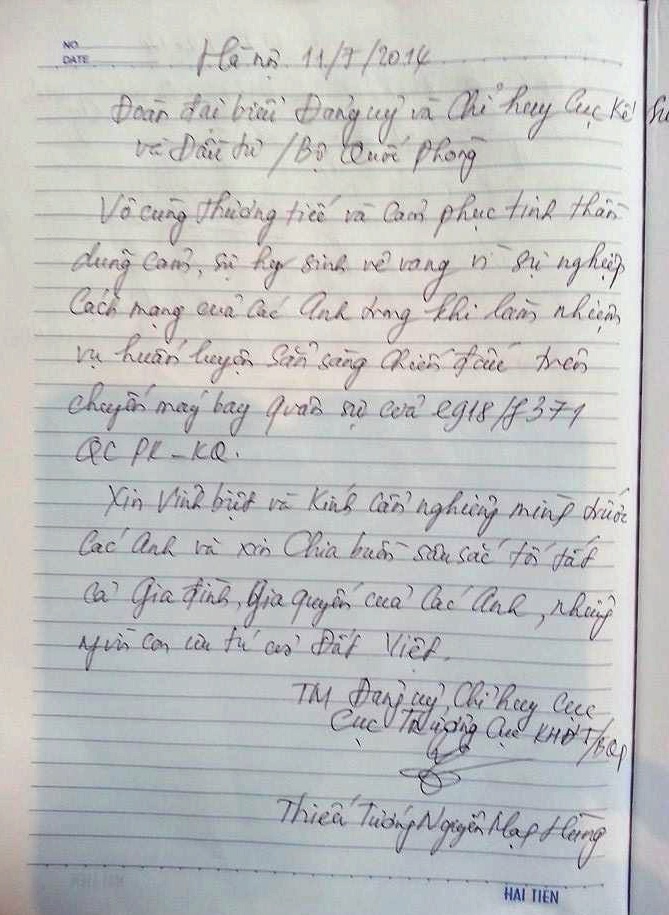 NO
DATE
Hà nội 11/7/2014
Đoàn đại biểu Đảng uỷ và Chỉ huy Cục Kế
và Đầu tư / Bộ Quốc phòng
Vô cùng thương tiếc và cảm phục tinh thần
dũng cảm, sự hy sinh vẻ vang vì sự nghiệp
Cách mạng của các Anh trong khi làm nhiệm
vụ huấn luyện sẵn sàng chiến đấu trên
chuyến máy bay quân sự của e918/f371
QC PK-KQ.
Xin Vĩnh biệt và Kính cẩn nghiêng mình trước
Các Anh và xin Chia buồn sâu sắc tới tất
cả Gia đình, Gia quyến của Các Anh, những
người con ưu tú của Đất Việt.
TM Đảng uỷ, Chỉ huy Cục
Cục Trưởng Cục KHĐT/BQP
Thiếu Tướng Nguyễn Mạnh Hùng
HẢI TIẾN